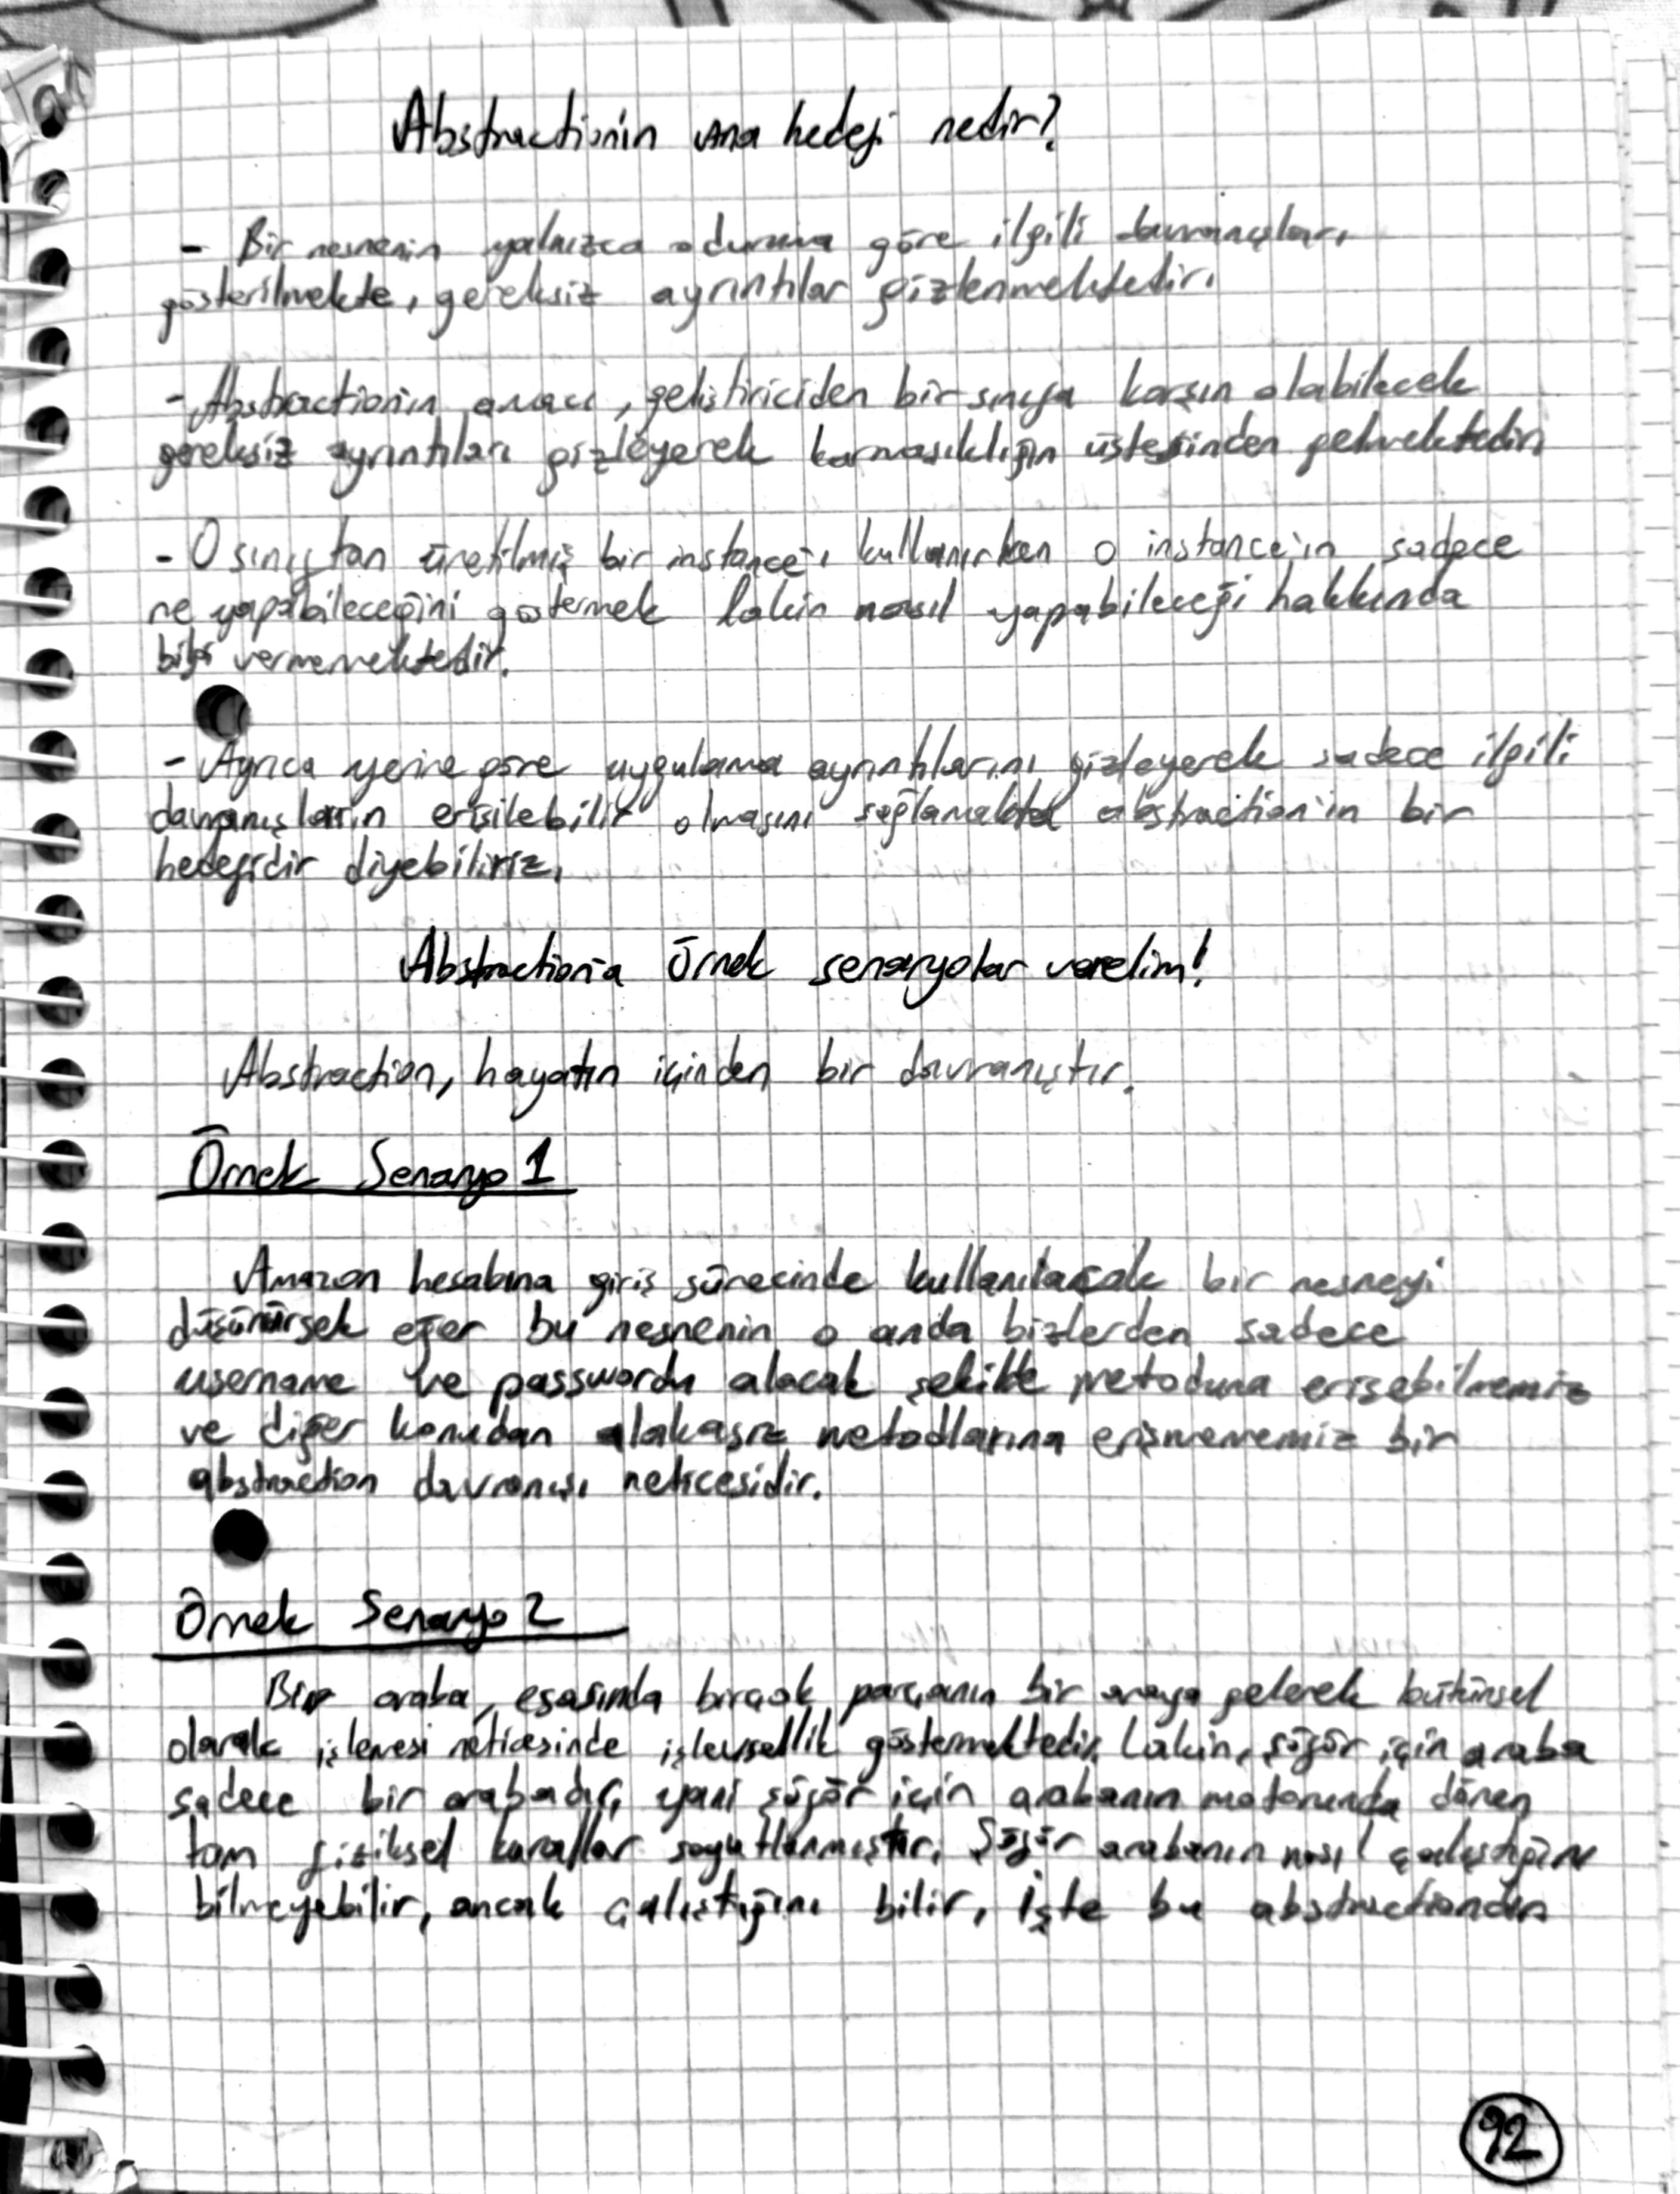 Abstraction'ın ana hedefi nedir?
- Bir nesnenin yalnızca o duruma göre ilgili davranışları
gösterilmekte, gereksiz ayrıntılar gizlenmektedir.
- Abstraction'ın amacı, geliştiriciden bir sınıfa karşın olabilecek
gereksiz ayrıntıları gizleyerek karmaşıklığın üstesinden gelmektedir.
- O sınıftan üretilmiş bir instance'ı kullanırken o instance'ın sadece
ne yapabileceğini göstermek lakin nasıl yapabileceği hakkında
bilgi vermemektedir.
- Ayrıca yerine göre uygulama ayrıntılarını gizleyerek sadece ilgili
davranışların erişilebilir olmasını sağlamakta abstraction'ın bir
hedefidir diyebiliriz.
Abstraction'a Örnek senaryolar verelim!
Abstraction, hayatın içinden bir davranıştır.
Örnek Senaryo 1
Amazon hesabına giriş sürecinde kullanılacak bir nesneyi
düşünürsek eğer bu nesnenin o anda bizlerden sadece
username ve passwordu alacak şekilde metoduna erişebilmemiz
ve diğer konudan alakasız metodlarına erişmememiz bir
abstraction davranışı neticesidir.
Örnek Senaryo 2
Bir araba, esasında birçok parçanın bir araya gelerek bütünsel
olarak işlemesi neticesinde işlevsellik göstermektedir. Lakin, şöför için araba
sadece bir arabadır, yani şöför için arabanın motorunda dönen
tüm fiziksel kurallar soyutlanmıştır. Şöför arabanın nasıl çalıştığını
bilmeyebilir, ancak çalıştığını bilir, İşte bu abstractiondır.
92